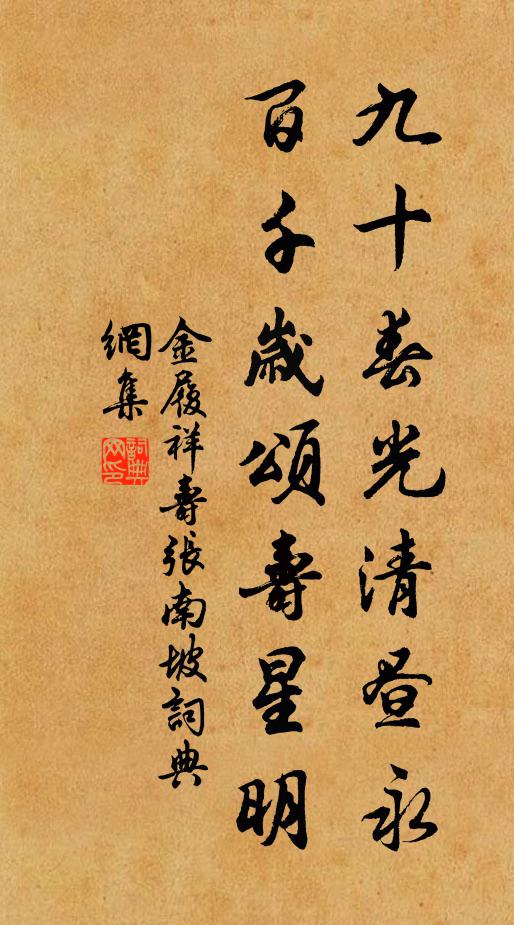 九十春光清昼永
百千歲頌壽星明
金履祥壽張南坡詞典
網集
詞典
网印